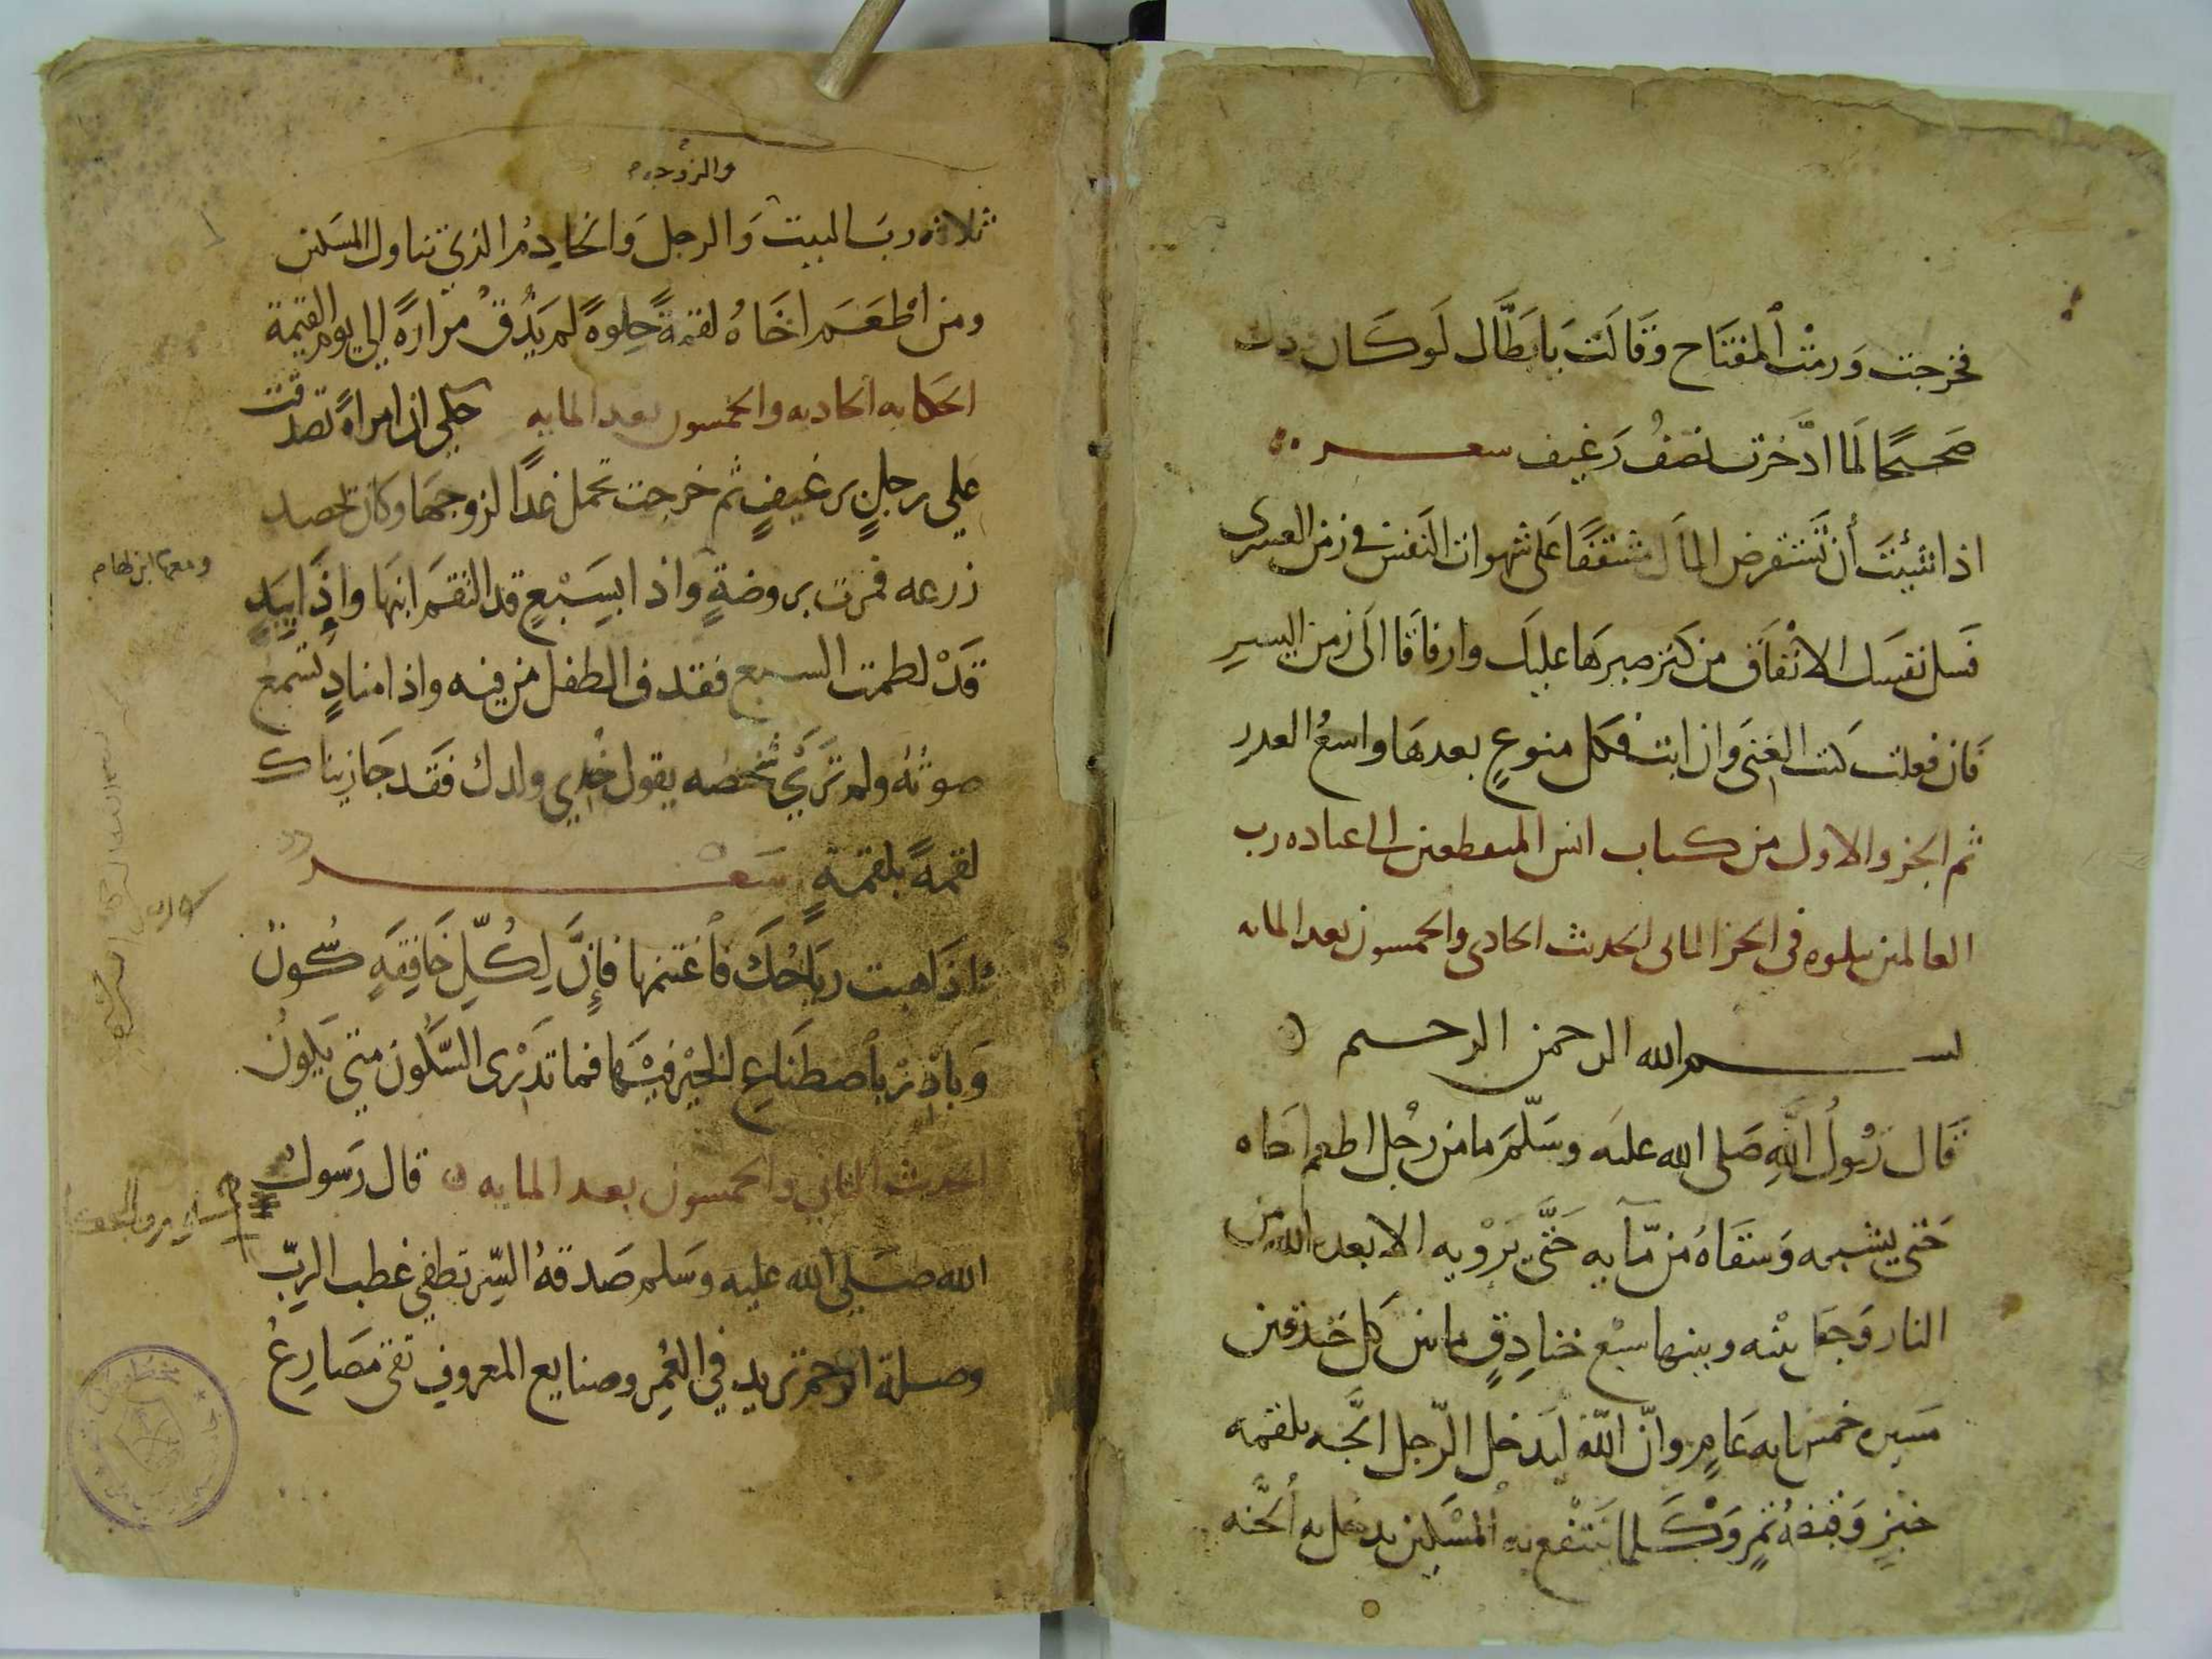 فخرجت ورمت المفتاح وقالت يا بطال لو كان ذلك
صحيحًا لما ادَّخرت نصفُ رَغيف شعر
اذا شئتَ أن تَستقرض المالَ منفقًا على شهوات النفس في زمن العسر
فَسل نفسَك الانفاق من كنز صبرها عليك وارفاقا الى زمن اليسرِ
فان فعلت كنت الغنى وان ابت فكل منوعٍ بعدها واسعُ العذر
تم الجزو الاول من كتاب انس المنقطعين الى عباده رب
العالمين يتلوه في الجز الثانى الحديث الحادى والخمسون بعد المايه
بسم الله الرحمن الرحيم
قَال رَسُولُ اللَّهِ صَلى الله عليه وسَلَّمَ ما من رجُل اطعم اخاه
حَتى يشبعه وَسقَاهُ من مَّآيه حَتَّى يَرْويه الا بعده الله من
النار وَجعل بينه وبينها سبْع خنادِقٍ ما بين كل خندقين
مَسيره خمس مايه عَامٍ وانّ اللّه ليَدخل الرّجل الجَّنه بلقمه
خبزٍ وَقبضهُ تمرٍ وَكلما يَنتفع به المسْكين يدخل به الجنَّه
والزوجه
ثلاثه ربَ البيت وَالرجل وَالخادِمُ الذي تناول المسكين
ومن اطْعَمَ اخَاهُ لقمةً حلوهً لم يَذُقْ مرارهً الي يوم القيمة
الحكايه الحاديه والخمسون بعد المايه حكي ان امراهً تصدقت
علي رجلٍ برغيفٍ ثم خرجت تحمل غدًا لزوجهَا وكان يحصد
زرعه فمرت بروضةٍ واذا بسَبْعٍ قد التقمَ ابنهَا واذَا بيَدٍ
ومعها ابن لها
قَدْ لطمت السبع فقذف الطفل من فيه واذا منادٍ تسمع
صوتهُ ولم تَرَيْ شخصه يقول خُدي ولدك فقَد جَازيناك
لقمهً بلقمةٍ شعر
اذَا هبت ريَاحُكَ فأغتنمها فإنَّ لِكُلِّ خَافِقَهٍ سُكون
وَبادِرْ بأصطنَاعِ الخيْر فيهَا فما تدْرى السُّكون متي يَكون
الحديث الثاني والخمسون بعد المايه قال رَسول
الله صَلي الله عليه وسَلم صَدقةُ السِّر تطفي غضب الربّ
وصلة الرحم تزيد في العُمر وصنايع المعروف تقى مصَارِعُ